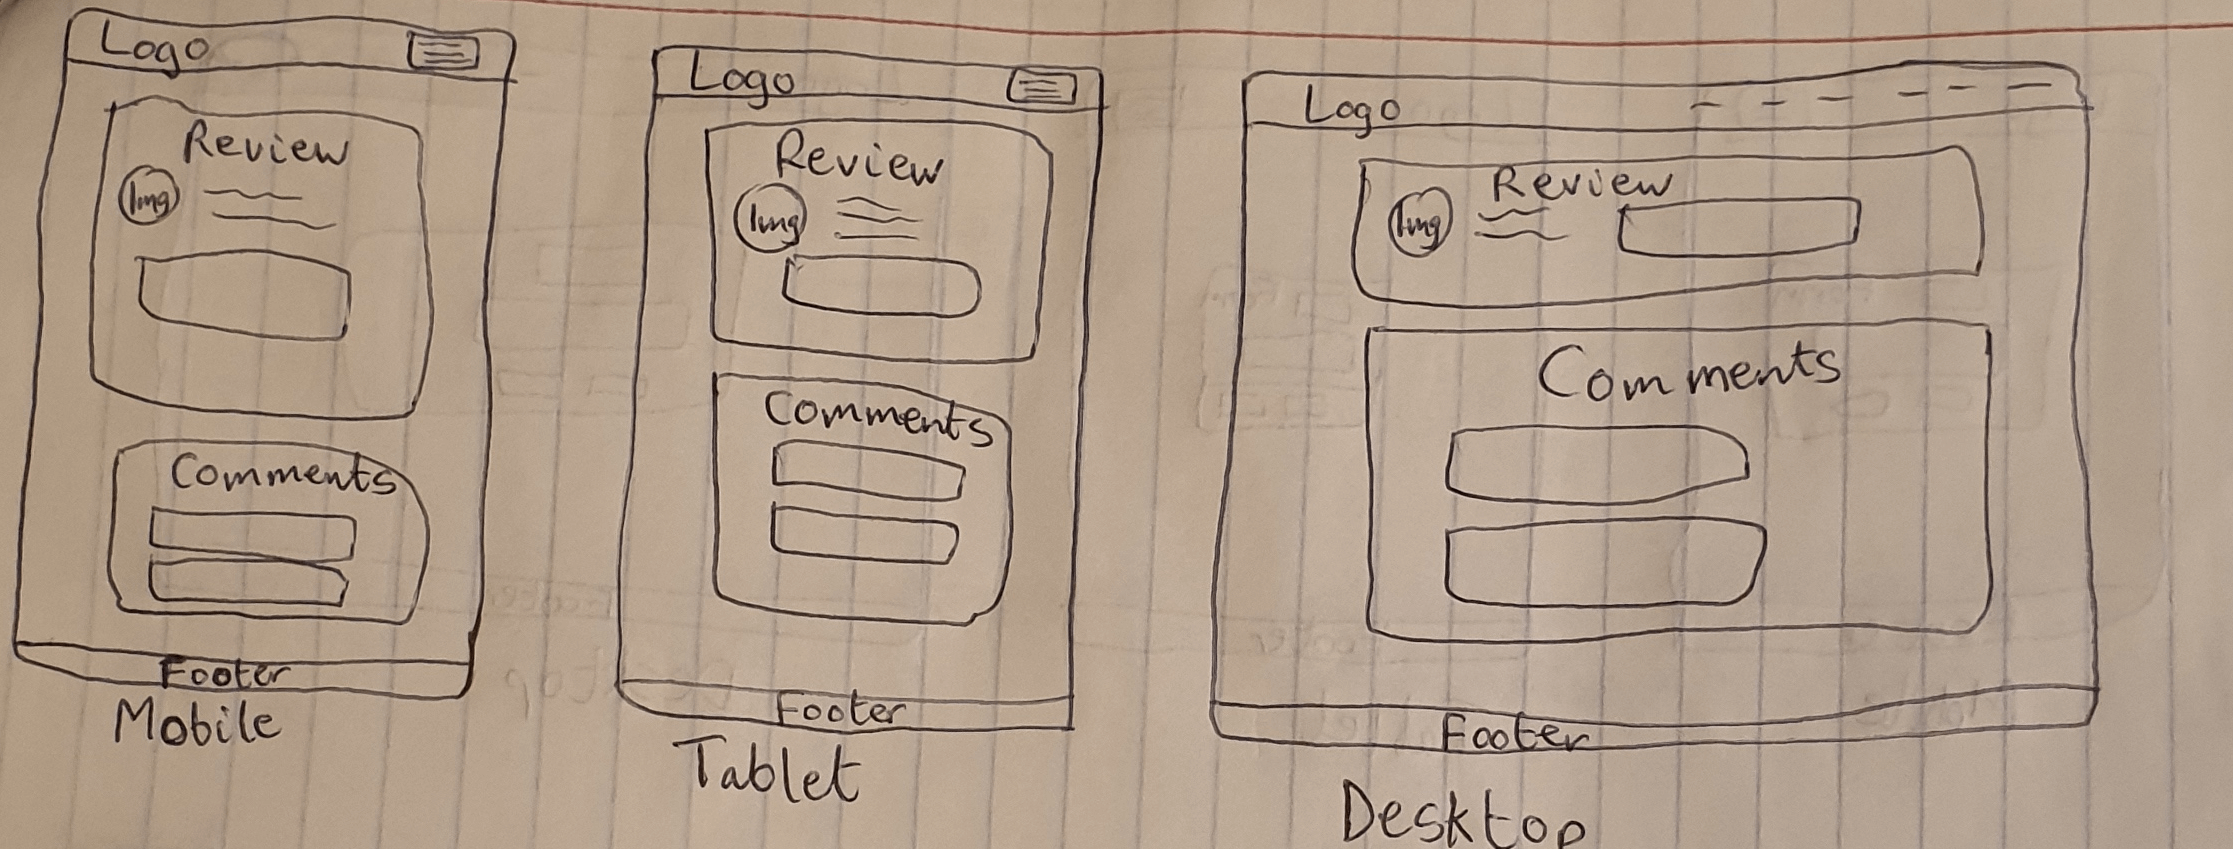 Logo
Review
Img
Comments
Footer
Mobile
Logo
Review
Img
Comments
Footer
Tablet
Logo
Review
Img
Comments
Footer
Desktop